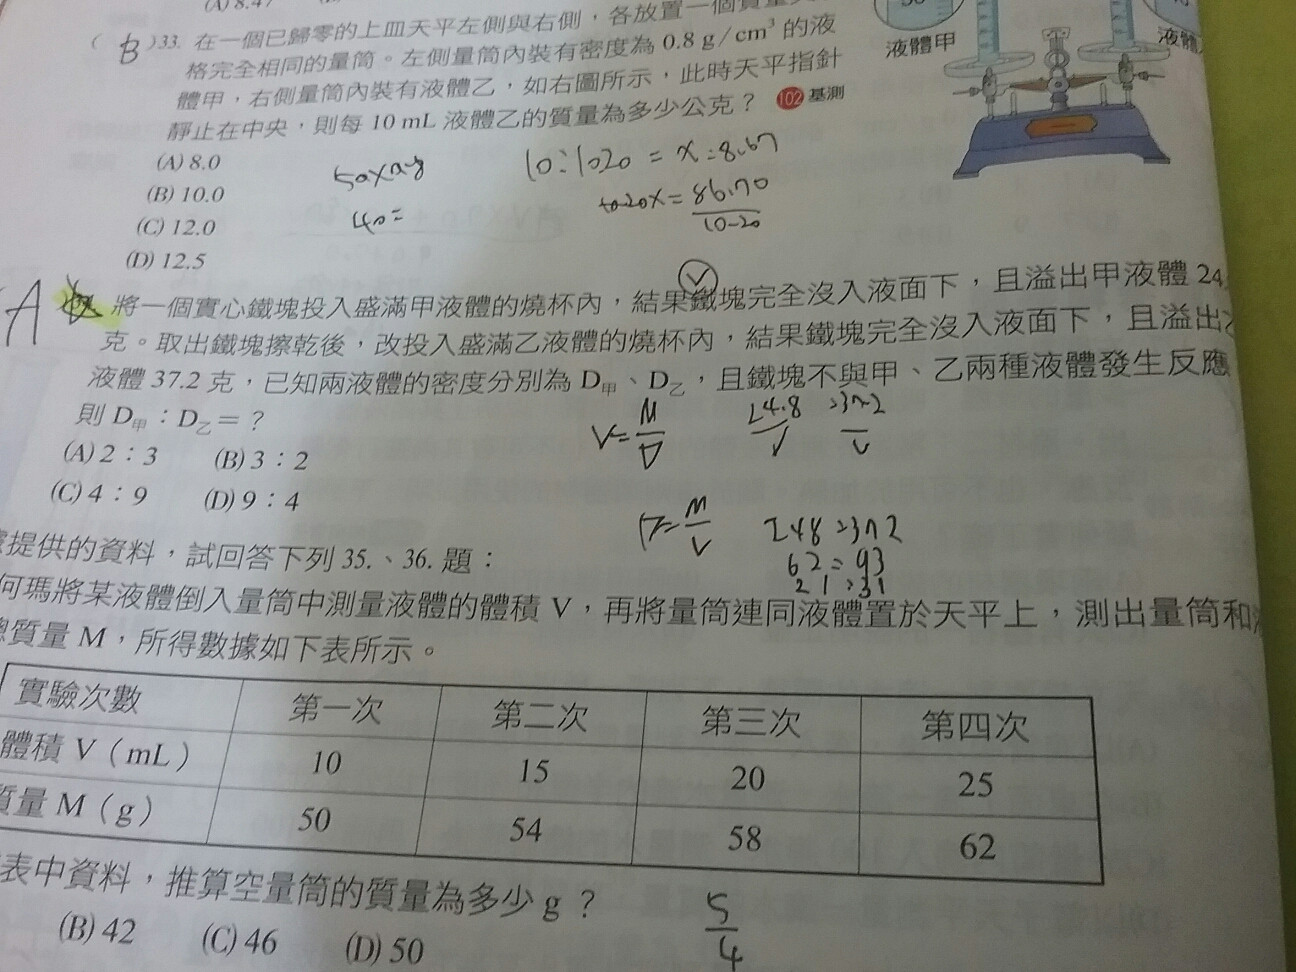 (A) 8.4
(B) 33. 在一個已歸零的上皿天平左側與右側，各放置一個質量
格完全相同的量筒。左側量筒內裝有密度為 0.8 g/cm³ 的液
體甲，右側量筒內裝有液體乙，如右圖所示，此時天平指針
靜止在中央，則每 10 mL 液體乙的質量為多少公克？ 102 基測
液體甲
液體
(A) 8.0
(B) 10.0
(C) 12.0
(D) 12.5
40=
A 將一個實心鐵塊投入盛滿甲液體的燒杯內，結果鐵塊完全沒入液面下，且溢出甲液體 24.
克。取出鐵塊擦乾後，改投入盛滿乙液體的燒杯內，結果鐵塊完全沒入液面下，且溢出乙
液體 37.2 克，已知兩液體的密度分別為 D甲、D乙，且鐵塊不與甲、乙兩種液體發生反應
則 D甲：D乙＝？
(A) 2：3 (B) 3：2
(C) 4：9 (D) 9：4
V=M/D
24.8/V
248:372
62:93
提供的資料，試回答下列 35.、36. 題：
何瑪將某液體倒入量筒中測量液體的體積 V，再將量筒連同液體置於天平上，測出量筒和
總質量 M，所得數據如下表所示。
實驗次數 第一次 第二次 第三次 第四次
體積 V（mL） 10 15 20 25
質量 M（g） 50 54 58 62
表中資料，推算空量筒的質量為多少 g？
(B) 42 (C) 46 (D) 50
5/4